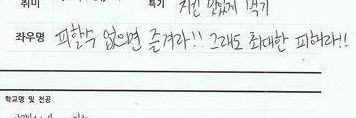 취미 특기 치킨 맛있게 먹기
좌우명 피할수 없으면 즐겨라!! 그래도 최대한 피해라!!
학교명 및 전공